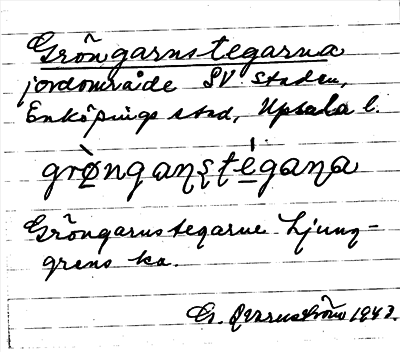 Gröngarnstegarna
jordområde SV. staden,
Enköpings stad, Upsala l.
grö̀ngaɳʂtégaɳa
Gröngarnstegarne Ljung-
grens ka.
G. Qvarnström 1943.